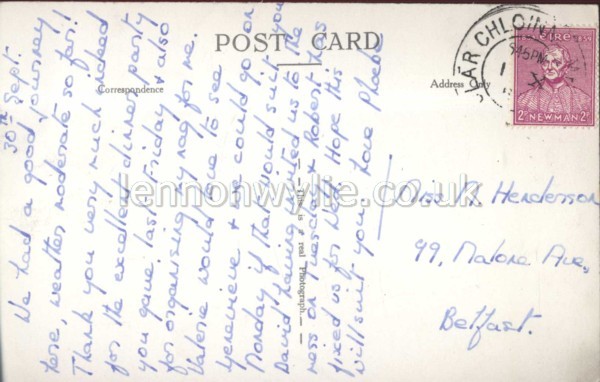 POST CARD
Correspondence
Address Only
This is a real Photograph.
ÁR CHLOINN
5 45PM
éire
2ᴅ NEWMAN 2ᴅ
30th Sept.
We had a good journey
here, weather moderate so far!
Thank you very much indeed
for the excellent dinner party
you gave last Friday & also
for organising my nag for me.
Valerie would love to see
Genevieve & we could go on
Monday if that would suit you
David having invited us to the
mess on Tuesday & Robert has
fixed us for Wed. Hope this
will suit you Love Phoebe
Miss K. Henderson
99, Malone Ave,
Belfast.
lennonwylie.co.uk